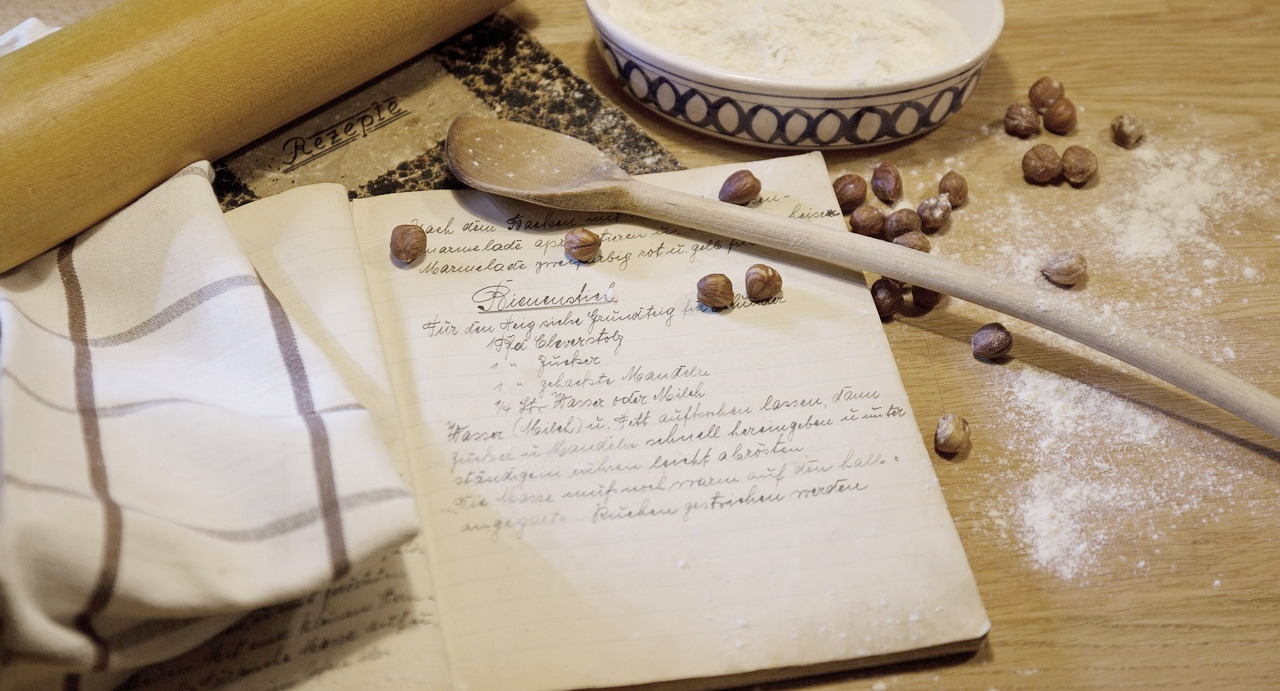 Rezepte
Nach dem Backen mit
marmelade
Marmelade zweifarbig rot u. gelb
Bienenstich
Für den Teig siehe Grundteig für
1 Pfd Cleverstolz
1 " Zucker
1 " gehackte Mandeln
1/4 Ltr Wasser oder Milch
Wasser (Milch) u. Fett aufkochen lassen, dann
Zucker u Mandeln schnell hereingeben u unter
ständigem rühren leicht abrösten
Die Masse muß noch warm auf den halb=
angegarten Kuchen gestrichen werden